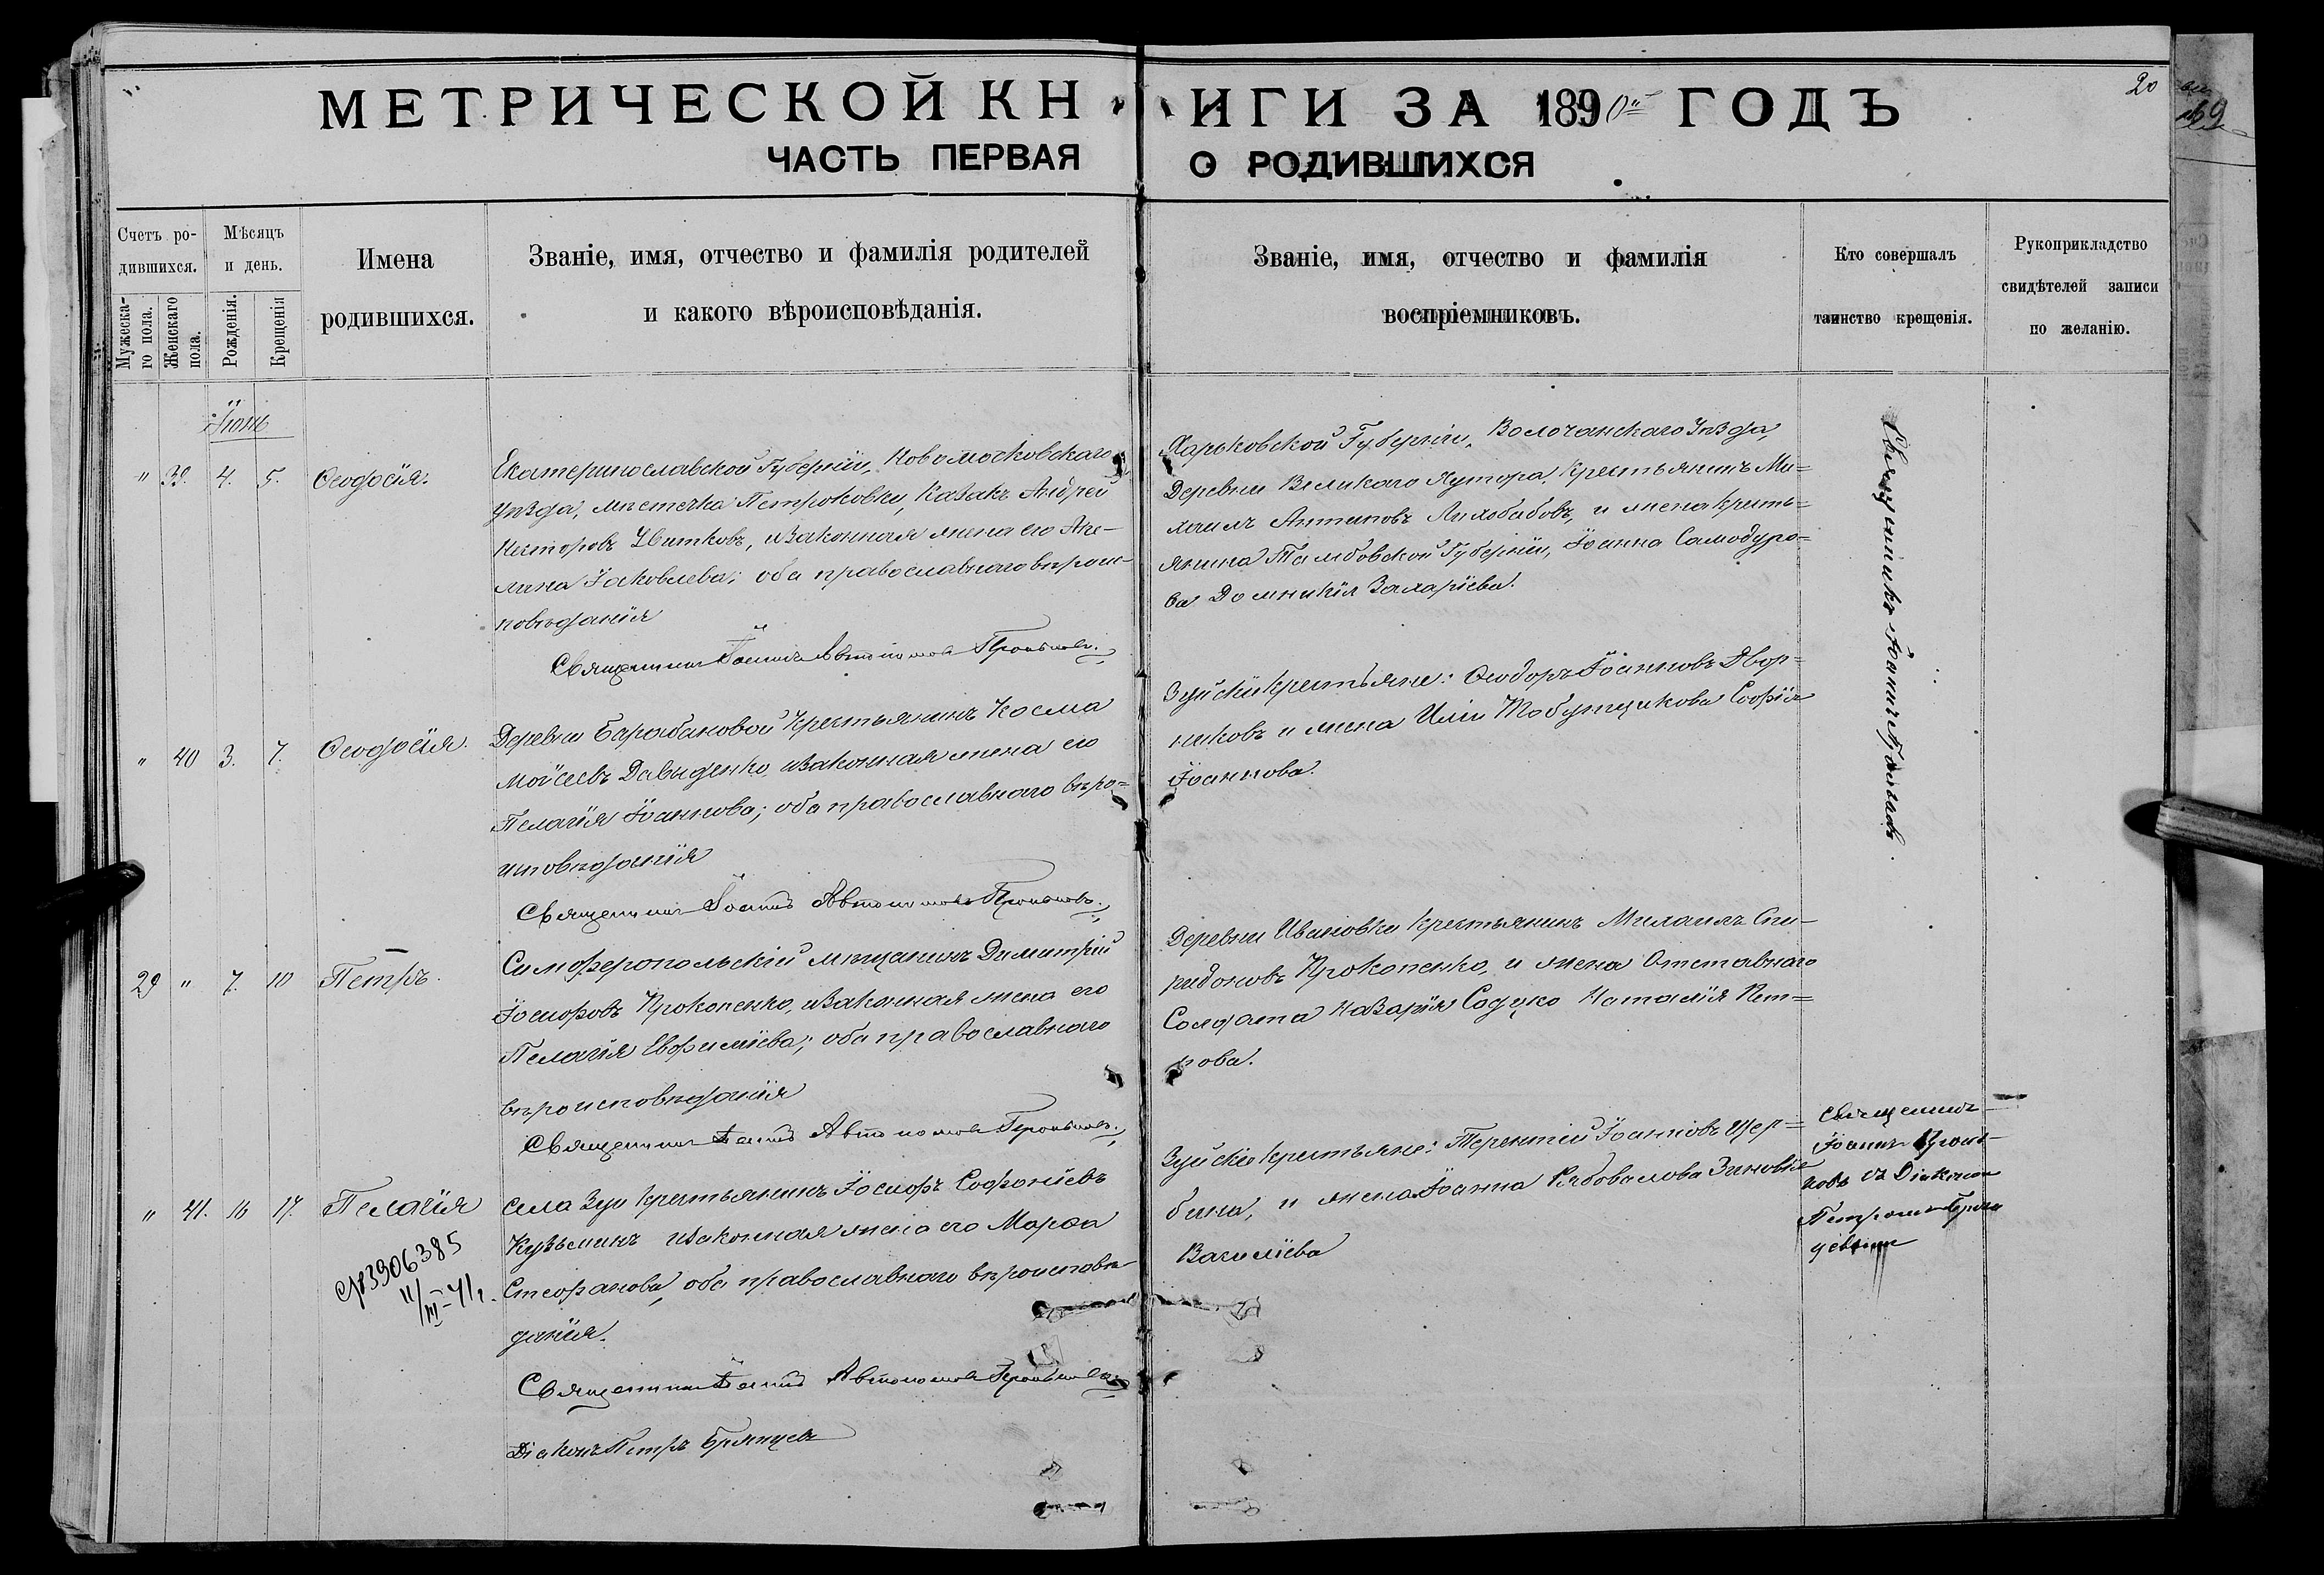 МЕТРИЧЕСКОЙ КНИГИ ЗА 1890 ГОДЪ
20
ЧАСТЬ ПЕРВАЯ О РОДИВШИХСЯ
Счетъ ро-
дившихся.
Мужеска-
го пола.
Женскаго
пола.
Мѣсяцъ
и день.
Рожденія.
Крещенія
Имена
родившихся.
Званіе, имя, отчество и фамилія родителей
и какого вѣроисповѣданія.
Званіе, имя, отчество и фамилія
воспріемниковъ.
Кто совершалъ
таинство крещенія.
Рукоприкладство
свидѣтелей записи
по желанію.
Іюнь
" 39. 4. 5. Ѳеодосія.
Екатеринославской Губерніи, Новомосковскаго
уѣзда, мѣстечка Петроковки, Казакъ Андрей
Несторовъ Цвитковъ, изаконная жена его Аке-
лина Іаковлева; оба православнаго вѣроис-
повѣданія
Священникъ Іоаннъ Автономовъ
Харьковской Губерніи, Волочанскаго Уѣзда,
Деревни Великаго Хутора, Крестьянинъ Ми=
хаилъ Антиповъ Лихобабовъ, и жена кресть=
янина Тамбовской Губерніи, Іоанна Самодуро=
ва Домникія Захаріева.
Священникъ Іоаннъ
" 40 3. 7. Ѳеодосія.
Деревни Барабановой Крестьянинъ Косма
Мойсеевъ Давиденко, изаконная жена его
Пелагія Іоаннова; оба православнаго вѣро=
исповѣданія
Священникъ Іоаннъ Автономовъ
Зуйскіе крестьяне: Ѳеодоръ Іоанновъ Двор=
никовъ и жена Иліи Табунщикова Софія
Іоаннова.
29 " 7. 10 Петръ.
Симферопольскій мѣщанинъ Димитрій
Іосифовъ Прокопенко, изаконная жена его
Пелагія Евфиміева; оба православнаго
вѣроисповѣданія
Священникъ Іоаннъ Автономовъ
Деревни Ивановки Крестьянинъ Михаилъ Спи-
ридоновъ Прокопенко, и жена Отставнаго
Солдата Назарія Садуко Наталія Пет=
рова.
" 41. 16 17. Пелагія
3906385
11/III-41г.
Села Зуи Крестьянинъ Іосифъ Софоніевъ
Кузьминъ изаконная жена его Марѳа
Стефанова, оба православнаго вѣроисповѣ-
данія.
Священникъ Іоаннъ Автономовъ
Діаконъ Петръ Брянцевъ
Зуйскіе крестьяне: Терентій Іоанновъ Щер=
бина, и жена Іоанна Рябовалова Зиновія
Василіева
Священникъ
Іоаннъ
съ Діакономъ
Петромъ